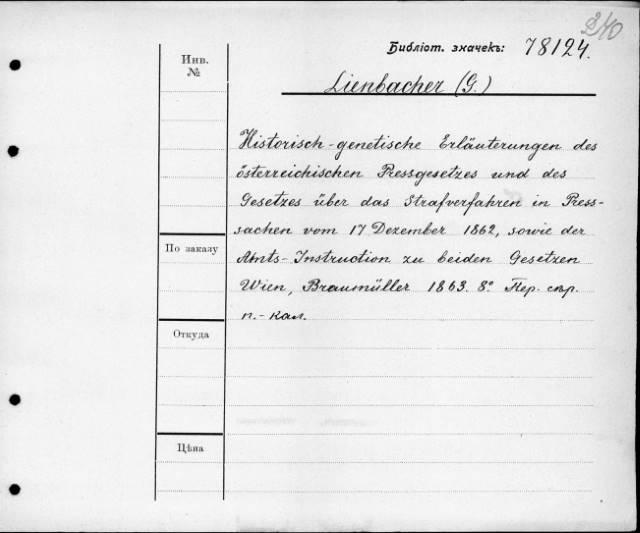 240
Библіот. значекъ: 78124.
Инв.
№
Lienbacher (G.)
Historisch-genetische Erläuterungen des
österreichischen Pressgesetzes und des
Gesetzes über das Strafverfahren in Press-
sachen vom 17 Dezember 1862, sowie der
Amts-Instruction zu beiden Gesetzen
Wien, Braumüller 1863. 8° Пер. свр.
п.-кал.
По заказу
Откуда
Цѣна